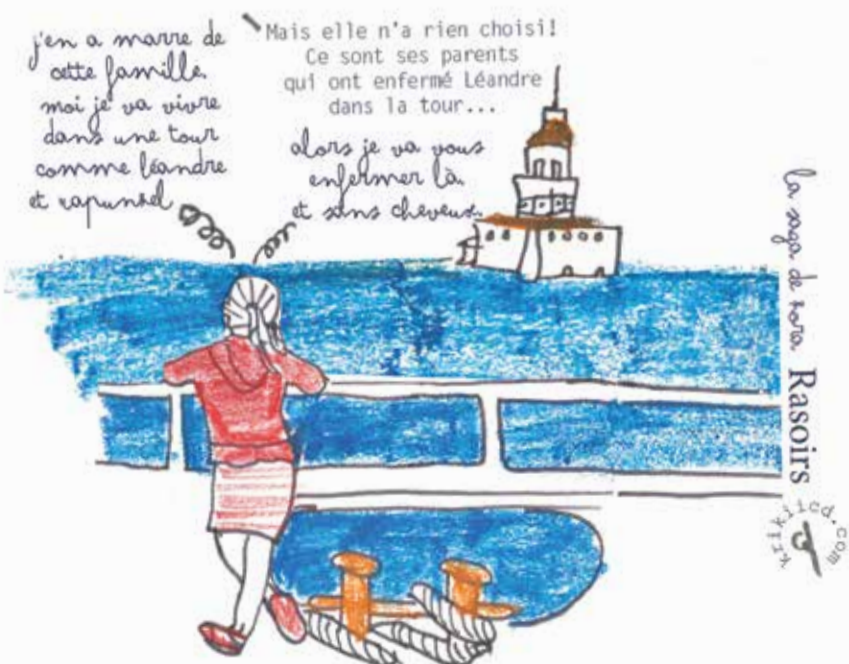 j'en a marre de
cette famille.
moi je va vivre
dans une tour
comme léandre
et rapunzel
Mais elle n'a rien choisi!
Ce sont ses parents
qui ont enfermé Léandre
dans la tour...
alors je va vous
enfermer là.
et sans cheveux.
la saga de rora. Rasoirs
krikiicd.com